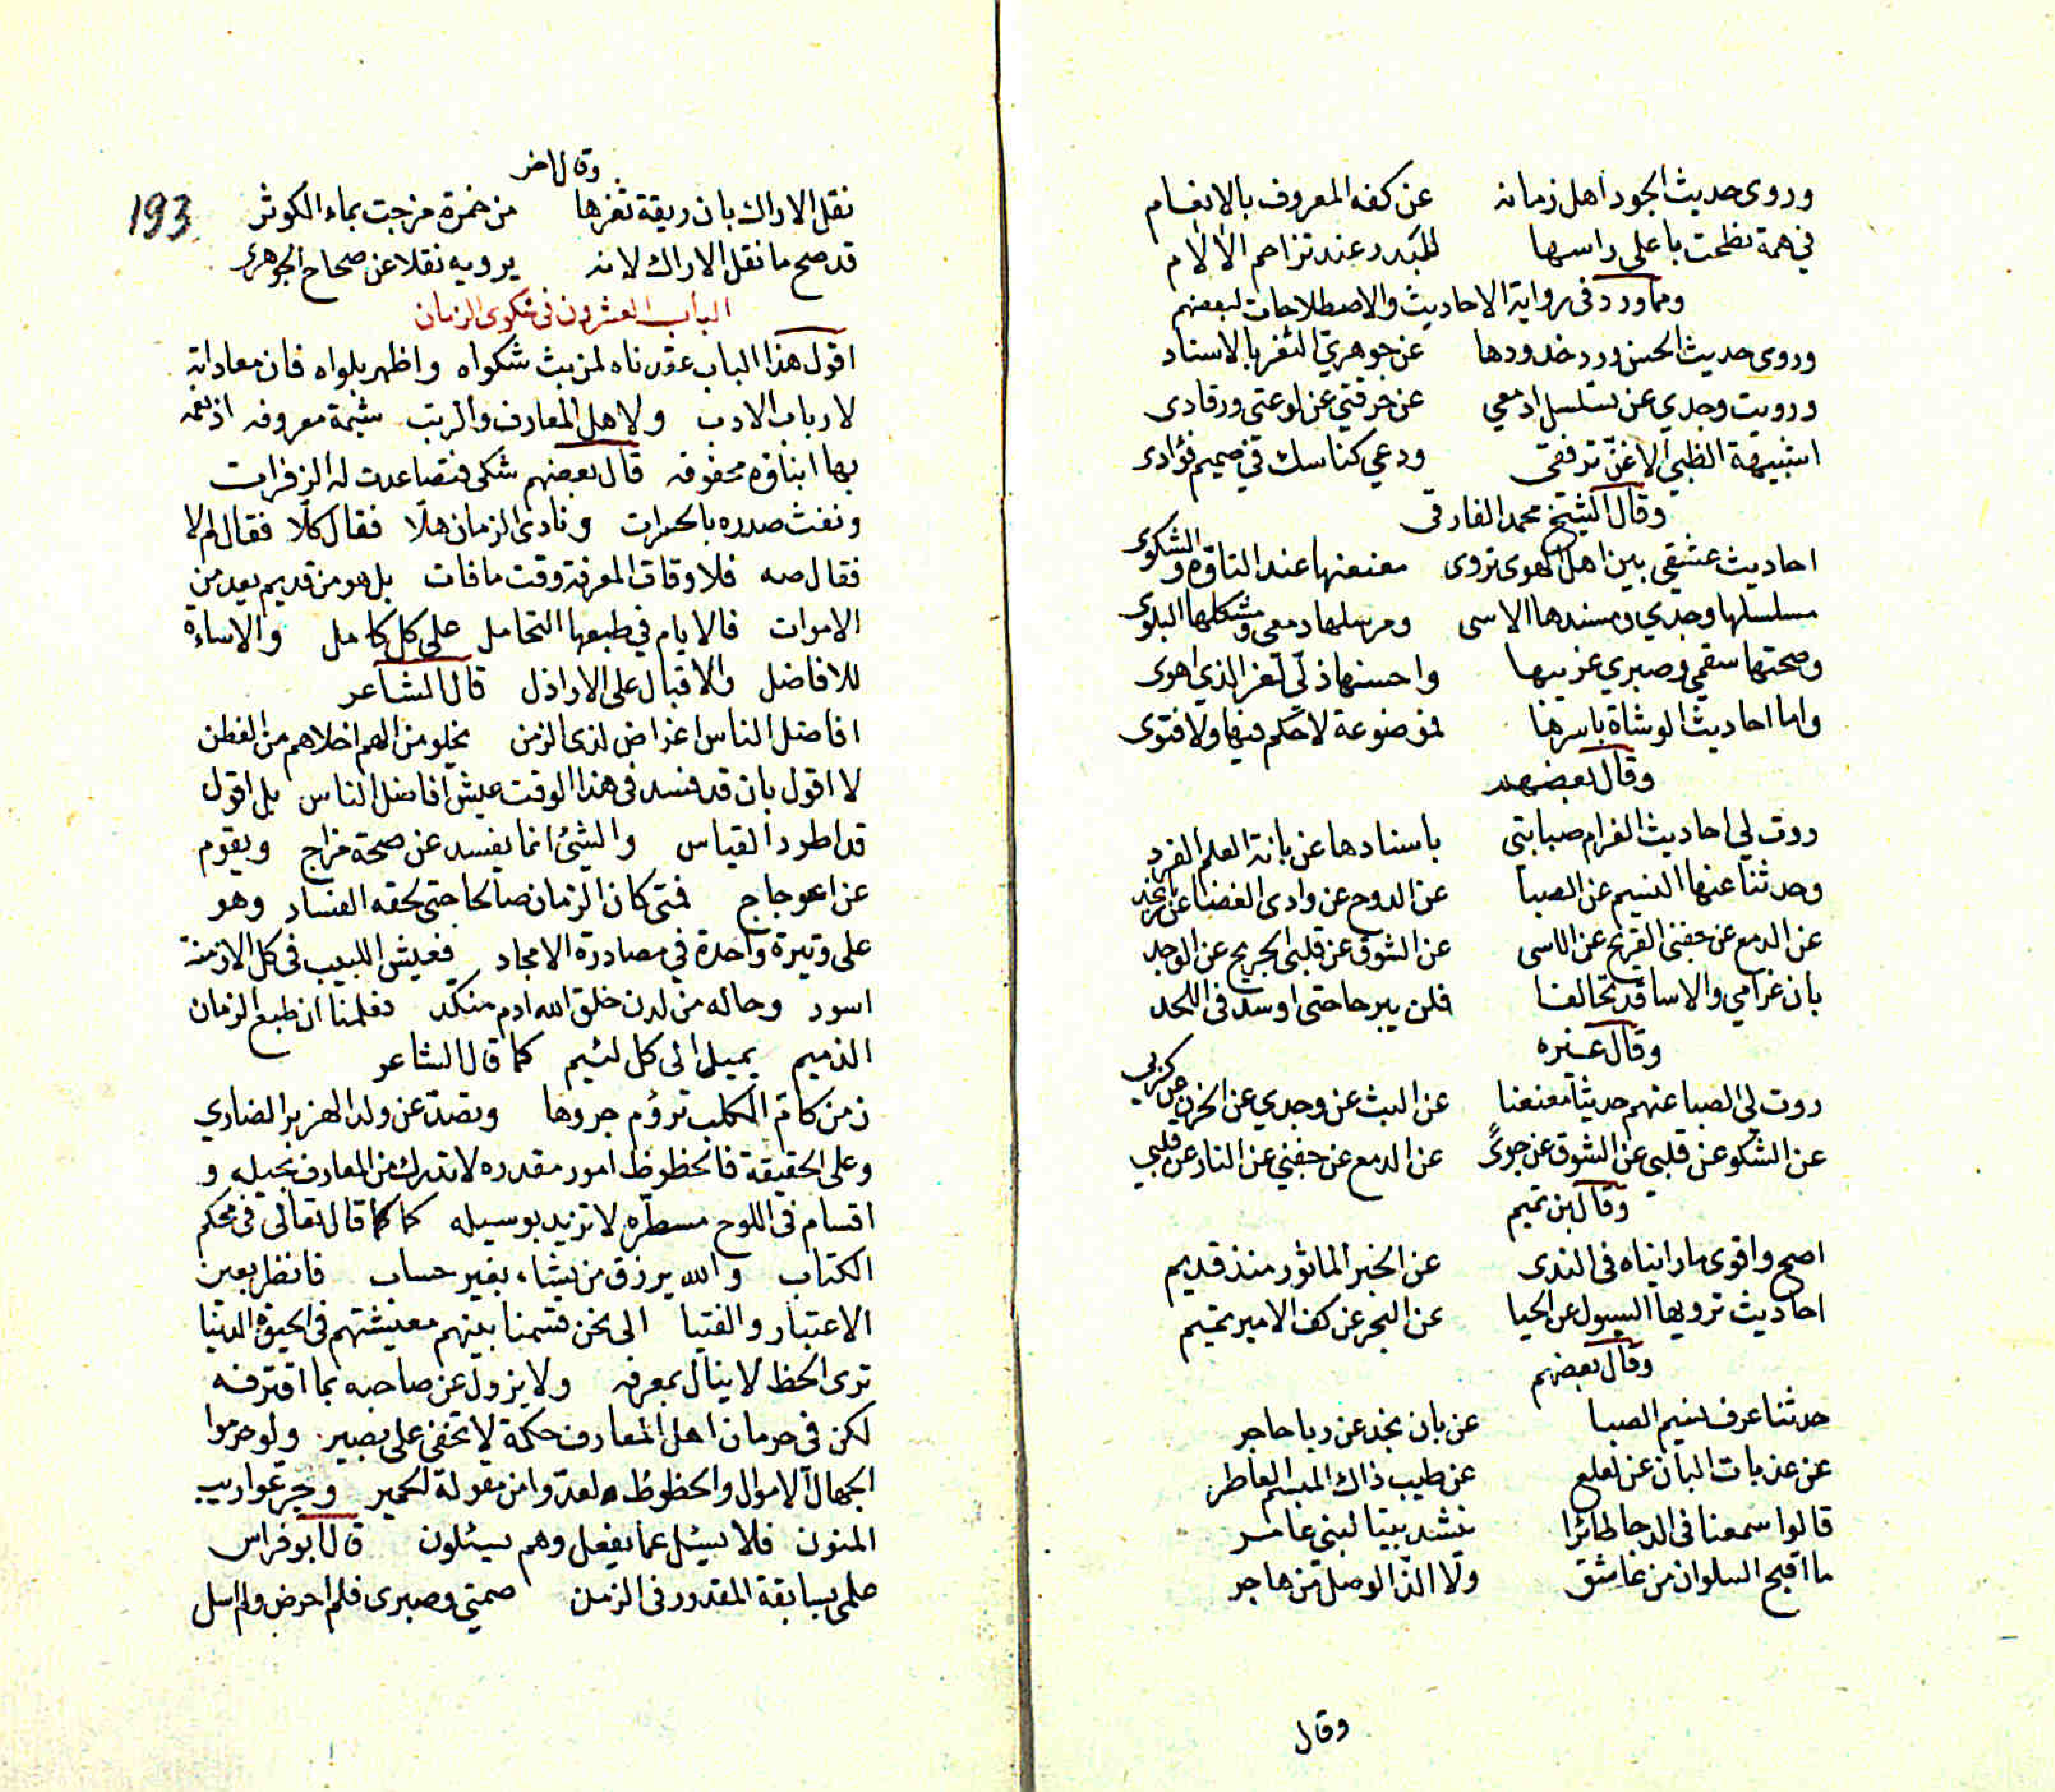 وروى حديث الجود اهل زمانه عن كفه المعروف بالانعام
في همة نطحت باعلى راسها للبدر عند تزاحم الالام
ومما ورد في رواية الاحاديث والاصطلاحات لبعضهم
وروى حديث الحسن ورد خدودها عن جوهري الثغر بالاسناد
ورويت وجدي عن تسلسل ادمعي عن حرقتي عن لوعتي ورقادى
اشبيهة الظبي الاغن ترفقى ودعي كناسك في صميم فؤادى
وقال الشيخ محمد الفارقى
احاديث عشقي بين اهل الهوى تروى معنعنها عند التاوه والشكوى
مسلسلها وجدي ومسندها الاسى ومرسلها دمعى ومشكلها البلوى
وصحتها سقمي وصبري غريبها واحسنها ذلي لغز الذي اهوى
واما احاديث الوشاة باسرها فموضوعة لا حكم فيها ولا فتوى
وقال بعضهم
روت لي احاديث الغرام صبابتى باسنادها عن بانة العلم الفرد
وحدثنا عنها النسيم عن الصبا عن الدوح عن وادى الغضا عن ربا نجد
عن الدمع عن جفني القريح عن الاسى عن الشوق عن قلبي الجريح عن الوجد
بان غرامي والاسا قد تحالفا فلن يبرحا حتى اوسد في اللحد
وقال غيره
روت لي الصبا عنهم حديثا معنعنا عن البث عن وجدي عن الحزن عن كربي
عن الشكو عن قلبي عن الشوق عن جوىً عن الدمع عن جفني عن النار عن قلبي
وقال بن تميم
اصح واقوى ما رايناه في الندى عن الخبر الماثور منذ قديم
احاديث ترويها السيول عن الحيا عن البحر عن كف الامير تميم
وقال بعضهم
حدثنا عرف نسيم الصبا عن بان نجد عن ربا حاجر
عن عذبات البان عن لعلع عن طيب ذاك المبسم العاطر
قالوا سمعنا في الدجا طائرا ينشد بيتا لبني عامر
ما اقبح السلوان من عاشق ولا الذ الوصل من هاجر
وقال
وقال اخر
193
نقل الاراك بان ريقة ثغرها من خمرة مزجت بماء الكوثر
قد صح ما نقل الاراك لانه يرويه نقلا عن صحاح الجوهرى
الباب العشرون في شكوى الزمان
اقول هذا الباب عقدناه لمن بث شكواه واظهر بلواه فان معاداته
لارباب الادب ولاهل المعارف والرتب شيمة معروفه اذ نعمه
بها ابناؤه محفوفه قال بعضهم شكى فتصاعدت له الزفرات
ونفث صدره بالحسرات ونادى الزمان هلا فقال كلا فقال لم لا
فقال صه فلاوقات المعرفة وقت ما فات بل هو من قديم يعد من
الاموات فالايام في طبعها التحامل على كل كامل والاساءة
للافاضل والاقبال على الاراذل قال الشاعر
افاضل الناس اغراض لذى الزمن يخلو من الهم اخلاهم من الفطن
لا اقول بان قد فسد في هذا الوقت عيش افاضل الناس بل اقول
قد اطرد القياس والشئ انما يفسد عن صحة مزاج ويقوم
عن اعوجاج فمتى كان الزمان صالحا حتى لحقه الفساد وهو
على وتيرة واحدة في مصادرة الامجاد فعيش اللبيب في كل الازمنة
اسود وحاله من لدن خلق الله ادم منكد فعلمنا ان طبع الزمان
الذميم يميل الى كل لئيم كما قال الشاعر
زمن كام الكلب ترؤم جروها وتصد عن ولد الهزبر الضاري
وعلى الحقيقة فالحظوظ امور مقدره لا تدرك من المعارف بحيله و
اقسام في اللوح مسطره لا تزيد بوسيله كما قال تعالى في محكم
الكتاب والله يرزق من يشاء بغير حساب فانظر بعين
الاعتبار والفتيا الى نحن قسمنا بينهم معيشتهم في الحيوة الدنيا
ترى الحظ لا ينال بمعرفه ولا يزول عن صاحبه بما اقترفه
لكن في حرمان اهل المعارف حكمة لا تخفى على بصير ولو حرموا
الجهال الاموال والحظوظ لعدوا من مقولة الحمير وجرعوا ريب
المنون فلا يسئل عما يفعل وهم يسئلون قال ابو فراس
علمى بسابقة المقدور في الزمن صمتي وصبرى فلم احرض ولم اسل